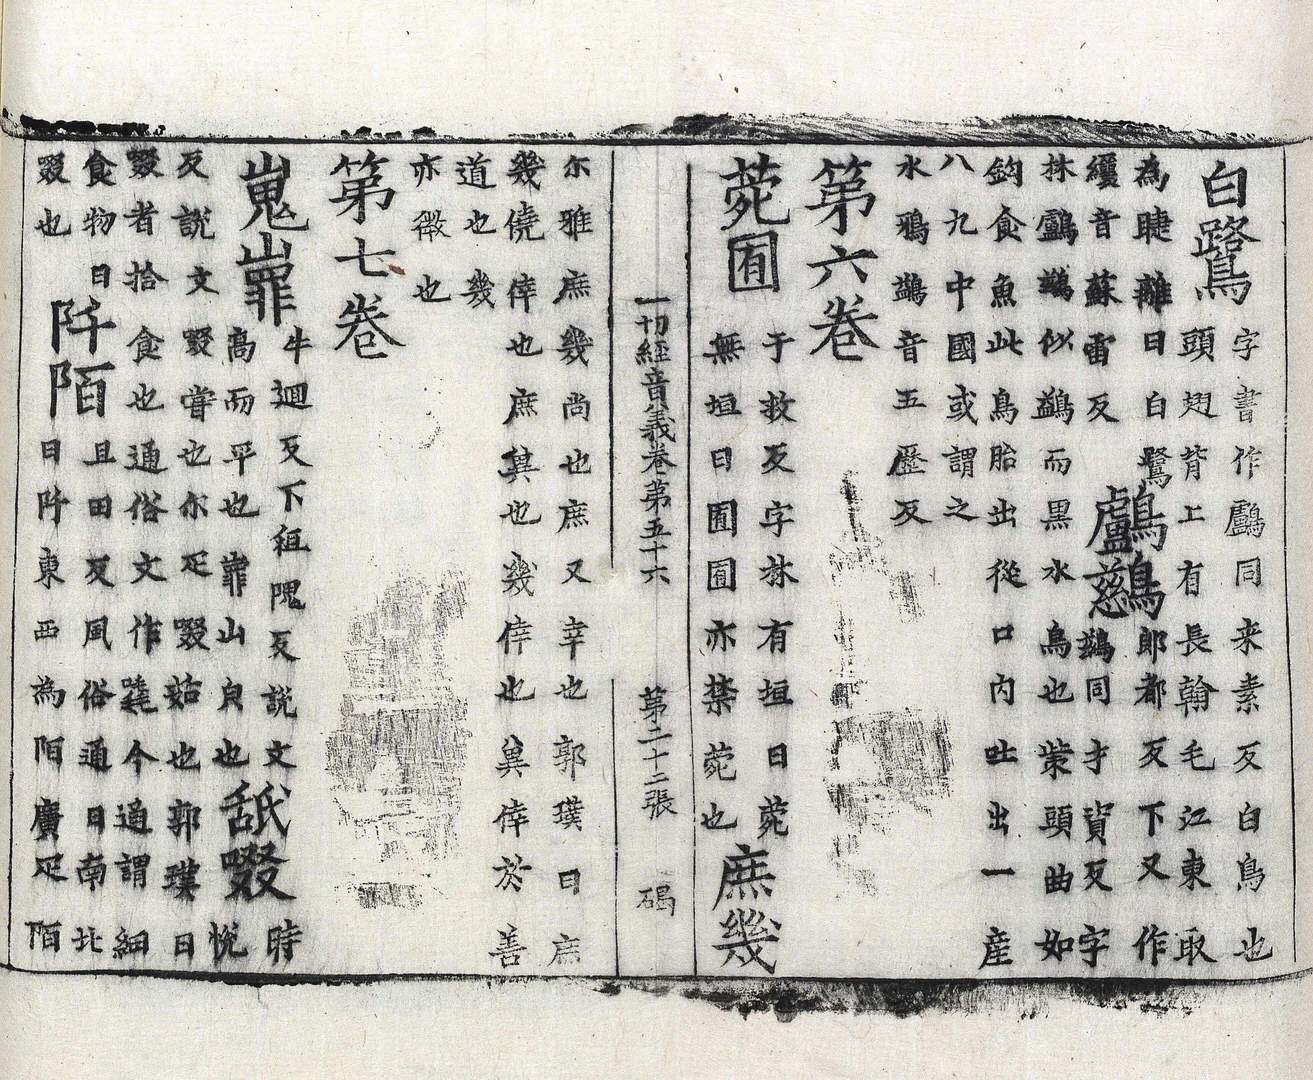 白鷺 字書作鸕同来素反白鳥也
頭翅背上有長翰毛江東取
為睫䍦曰白鷺
纙音蘇雷反
鸕鷀 郎都反下又作
鷀同才資反字
林鸕鷀似鷁而黑水鳥也觜頭曲如
鈎食魚此鳥胎出從口內吐出一産
八九中國或謂之
水鴉鷁音五歷反
第六卷
菀囿 于救反字林有垣曰菀
無垣曰囿囿亦禁菀也
庶幾
一切經音義卷第五十六 第二十二張 碣
尔雅庶幾尚也庶又幸也郭璞曰庶
幾僥倖也庶兾也幾倖也兾倖於善
道也幾
亦微也
第七卷
嵬辠 牛迴反下徂隗反說文
高而平也辠山皃也
舐啜 時
悅
反說文啜嘗也尔疋啜茹也郭璞曰
啜者拾食也通俗文作今通謂細
食物曰
啜也
阡陌 且田反風俗通曰南北
曰阡東西為陌廣疋陌